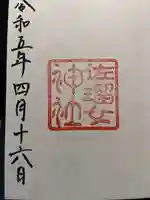 佐瑠女
神社
令和五年四月十六日